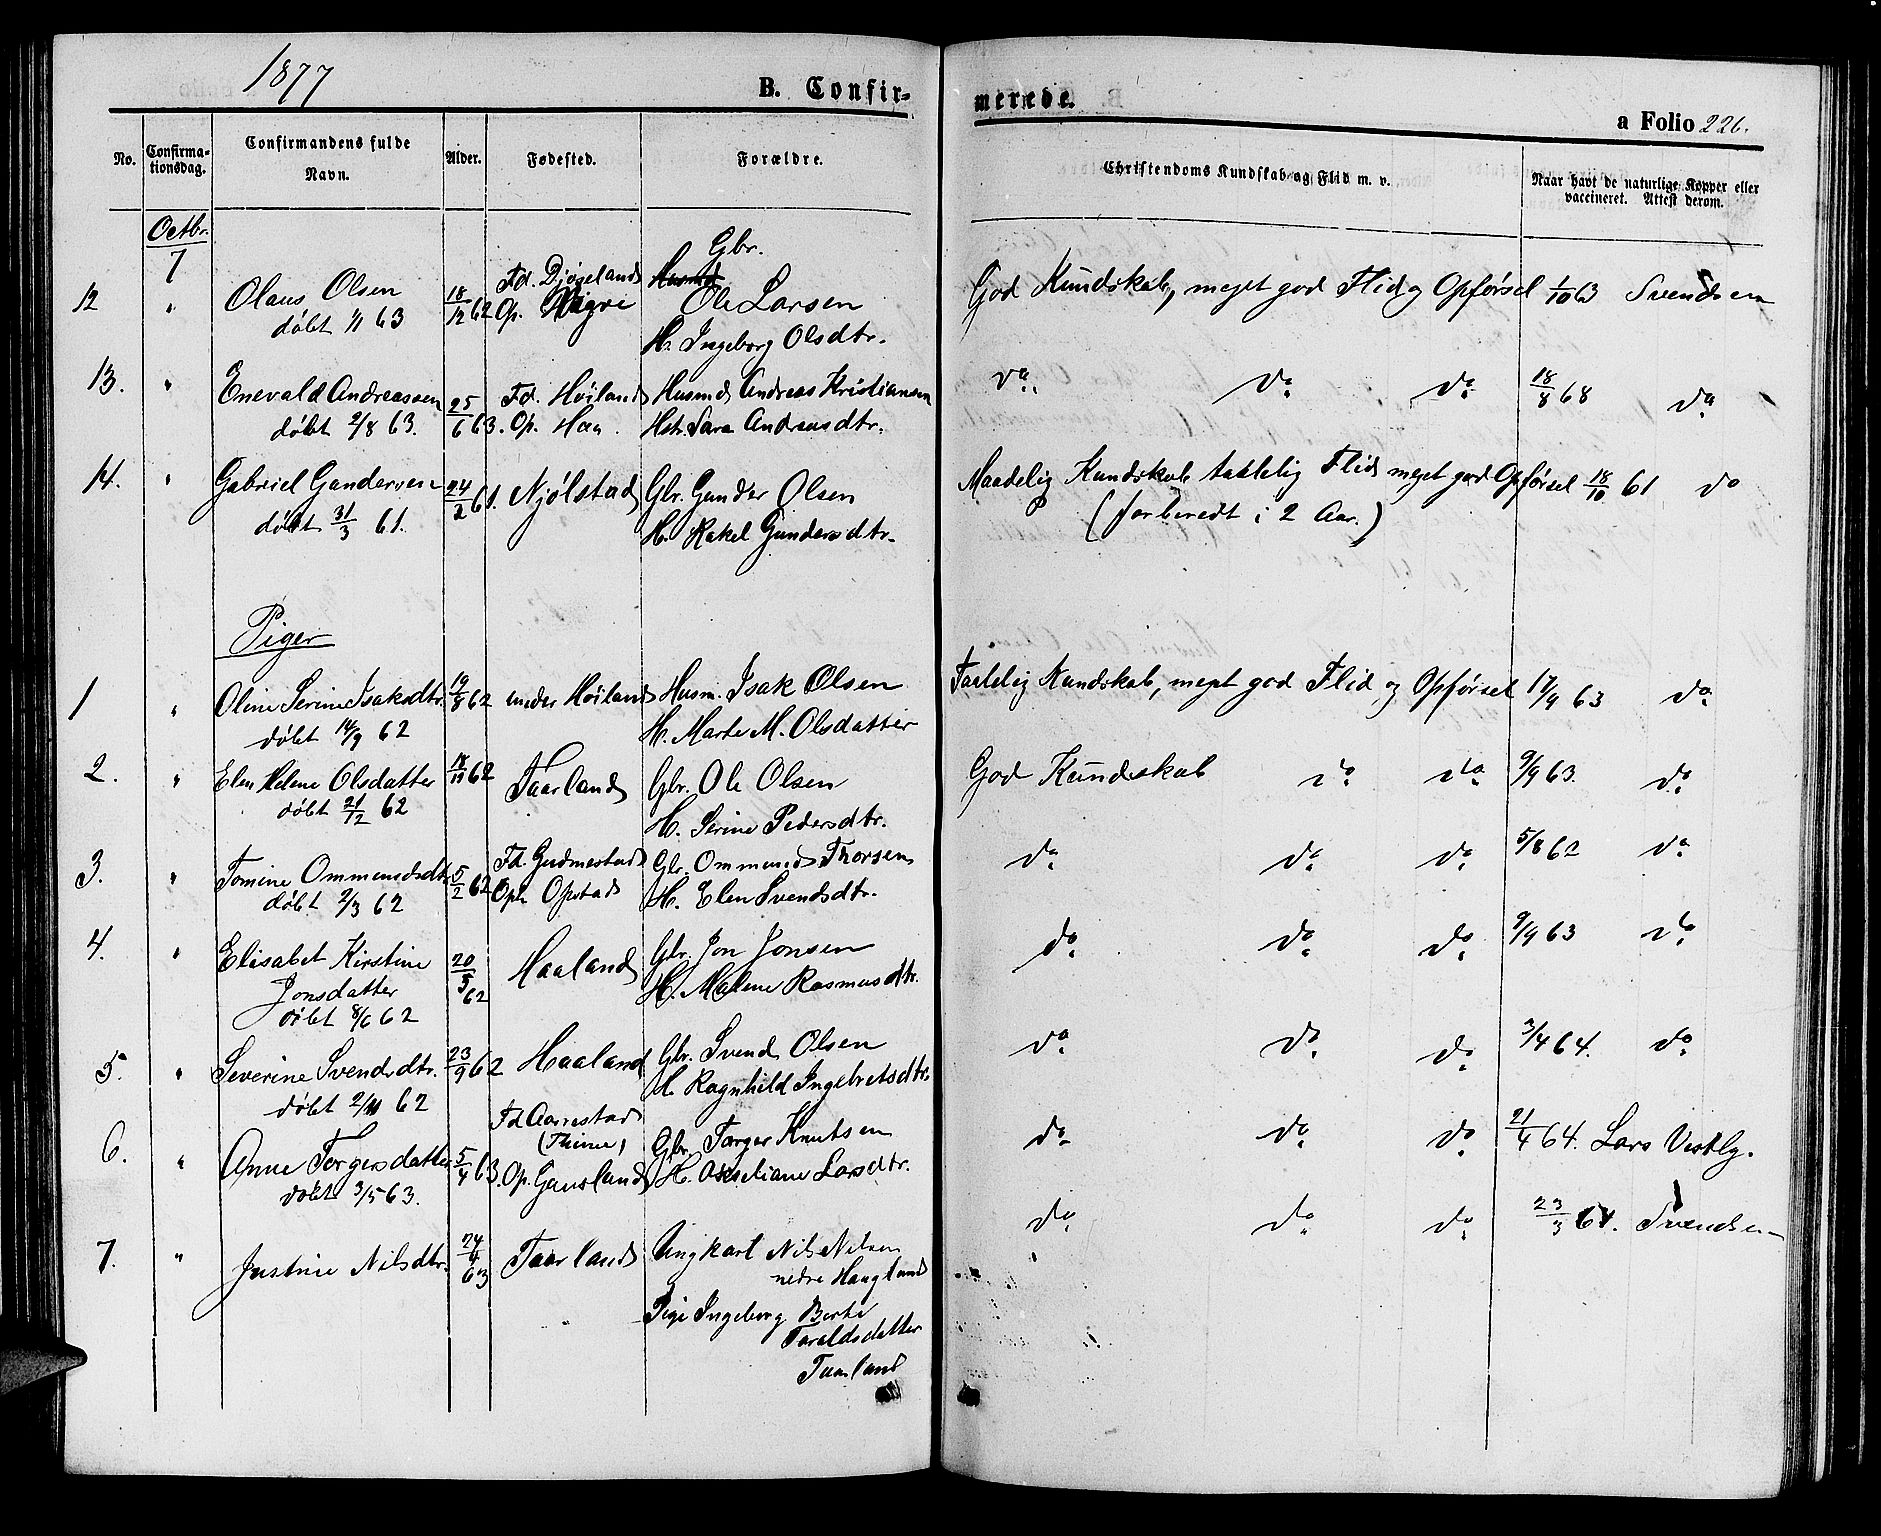 1877
B. Confir-
merede.
a Folio 226.
No.
Confirma-
tionsdag.
Confirmandens fulde
Navn.
Alder.
Fødested.
Forældre.
Christendoms Kundskab og Flid m. v.
Naar havt de naturlige Kopper eller
vaccineret. Attest derom.
Octbr.
7
12 " Olaus Olsen 18/12 62 Fd. Gbr.
døbt 1/1 63 Op. Ole Larsen
H. Ingeborg Olsdtr.
God Kundskab, meget god Flid og Opførsel 1/10 63 Svendsen
13. " Enevald Andreassen 25/6 63. Fd. Høiland Husmd Andreas Kristiansen
døbt 2/8 63. Op. Haa. Hstr. Sara Andreasdtr.
do. do. do. 18/8 68 do
14. " Gabriel Gundersen 24/2 61. Njølstad Gbr. Gunder Olsen
døbt 31/3 61. H. Rakel Gundersdtr.
Maadelig Kundskab taalelig Flid meget god Opførsel 18/10 61 do
(forberedt i 2 Aar.)
Piger
1 " Oline Serine Isaksdtr. 19/8 62 under Høiland Husm. Isak Olsen
døbt 14/9 62 H. Marte M. Olsdatter
Taalelig Kundskab, meget god Flid og Opførsel 17/9 63 do.
2. " Elen Helene Olsdatter 18/10 62 Taarland Gbr. Ole Olsen
døbt 21/12 62 H. Serine Pedersdtr.
God Kundskab do. do. 9/9 63. do.
3. " Tomine Ommundsdtr 5/2 62 Fd. Gudmestad Gbr. Ommund Thorsen
døbt 2/3 62 Oph Opstad H. Elen Svendsdtr.
do. do. do. 5/8 62 do.
4. " Elisabet Kirstine 20/5 62 Haaland Gbr. Jon Jonsen
Jonsdatter H. Malene Rasmusdtr.
døbt 8/6 62
do. do. do. 9/9 63 do.
5. " Severine Svendsdtr. 23/9 62 Haaland Gbr. Svend Olsen
døbt 2/11 62 H. Ragnhild Ingebretsdtr.
do. do. do. 3/4 64. do.
6. " Anne Torgersdatter 5/4 63. Fd Aarrestad
(Thime) Gbr. Torger Knutsen
døbt 3/5 63. Op. Gausland H. Akseliane Larsdtr.
do. do. do. 21/4 64. Lars Vestly.
7. " Justine Nilsdtr. 24/6 63 Taarland Ungkarl Nils Nilsen
nedre Haugland
Pige Ingeborg Berte
Taraldsdatter
Taarland
do. do. do. 23/3 64. Svendsen